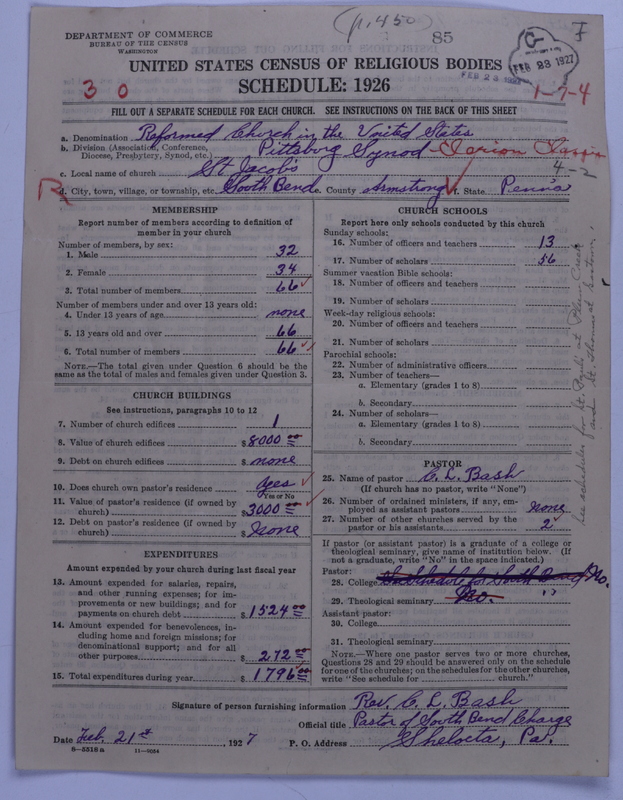 (p. 450)
85
F
DEPARTMENT OF COMMERCE
BUREAU OF THE CENSUS
WASHINGTON
FEB 23 1927
FEB 23 1927
UNITED STATES CENSUS OF RELIGIOUS BODIES
SCHEDULE: 1926
3 0
1-7-4
FILL OUT A SEPARATE SCHEDULE FOR EACH CHURCH. SEE INSTRUCTIONS ON THE BACK OF THIS SHEET
a. Denomination Reformed Church in the United States
b. Division (Association, Conference, Diocese, Presbytery, Synod, etc.) Pittsburg Synod - Clarion Classis
c. Local name of church St Jacob's
4-2
R
d. City, town, village, or township, etc. South Bend e. County Armstrong f. State Penn'a
MEMBERSHIP
Report number of members according to definition of
member in your church
Number of members, by sex:
1. Male 32
2. Female 34
3. Total number of members 66
Number of members under and over 13 years old:
4. Under 13 years of age none
5. 13 years old and over 66
6. Total number of members 66
NOTE.—The total given under Question 6 should be the
same as the total of males and females given under Question 3.
CHURCH BUILDINGS
See instructions, paragraphs 10 to 12
7. Number of church edifices 1
8. Value of church edifices $8000 00
9. Debt on church edifices $none
10. Does church own pastor's residence yes
Yes or No
11. Value of pastor's residence (if owned by
church) $3000 00
12. Debt on pastor's residence (if owned by
church) $None
EXPENDITURES
Amount expended by your church during last fiscal year
13. Amount expended for salaries, repairs,
and other running expenses; for im-
provements or new buildings; and for
payments on church debt $1524 00
14. Amount expended for benevolences, in-
cluding home and foreign missions; for
denominational support; and for all
other purposes $272 00
15. Total expenditures during year $1796 00
CHURCH SCHOOLS
Report here only schools conducted by this church
Sunday schools:
16. Number of officers and teachers 13
17. Number of scholars 56
Summer vacation Bible schools:
18. Number of officers and teachers
19. Number of scholars
Week-day religious schools:
20. Number of officers and teachers
21. Number of scholars
Parochial schools:
22. Number of administrative officers
23. Number of teachers—
a. Elementary (grades 1 to 8)
b. Secondary
24. Number of scholars—
a. Elementary (grades 1 to 8)
b. Secondary
PASTOR
25. Name of pastor C. L. Bash
(If church has no pastor, write "None")
26. Number of ordained ministers, if any, em-
ployed as assistant pastors None
27. Number of other churches served by the
pastor or his assistants 2
If pastor (or assistant pastor) is a graduate of a college or
theological seminary, give name of institution below. (If
not a graduate, write "No" in the space indicated.)
Pastor:
28. College See schedule for South Bend No.
29. Theological seminary No. "
Assistant pastor:
30. College
31. Theological seminary
NOTE.—Where one pastor serves two or more churches,
Questions 28 and 29 should be answered only on the schedule
for one of the churches; on the schedules for the other churches,
write "See schedule for church."
See schedules for St. Paul's at Plum Creek
and St. Thomas at
Signature of person furnishing information Rev. C. L. Bash
Official title Pastor of South Bend Charge
Date Feb. 21st, 1927 P. O. Address Shelocta, Pa.
8-5518a 11-9054